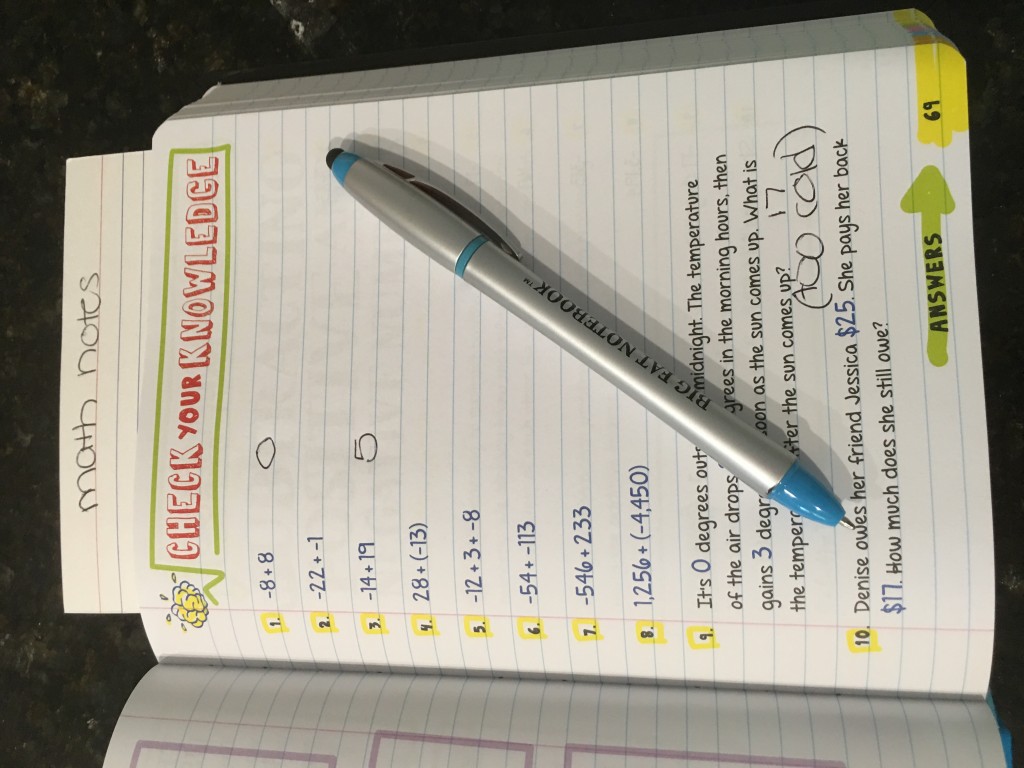 math notes
CHECK YOUR KNOWLEDGE
1. -8 + 8 0
2. -22 + -1
3. -14 + 19 5
4. 28 + (-13)
5. -12 + 3 + -8
6. -54 + -113
7. -546 + 233
8. 1,256 + (-4,450)
9. It's 0 degrees midnight. The temperature
of the air drops in the morning hours, then
gains 3 as the sun comes up. What is
the the sun comes up?
17
(too cold)
10. Denise owes her friend Jessica $25. She pays her back
$17. How much does she still owe?
ANSWERS
69
BIG FAT NOTEBOOK™